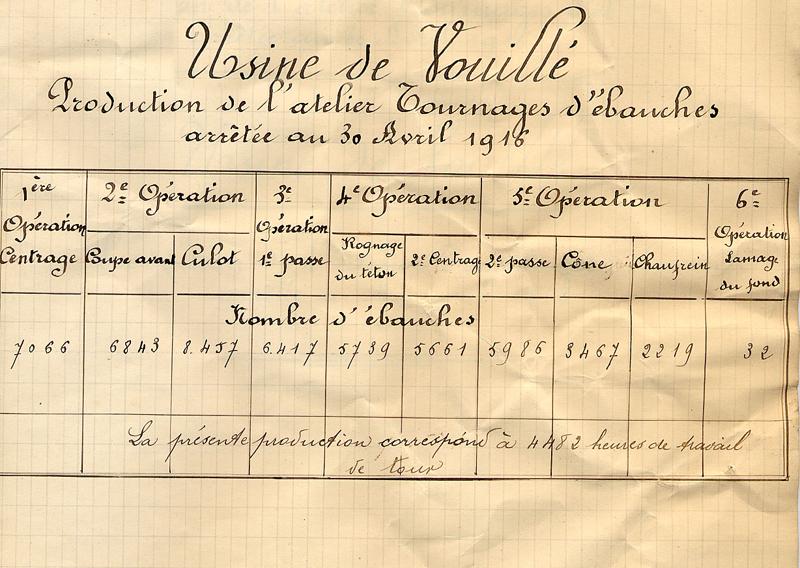 Usine de Vouillé
Production de l'atelier Tournages d'ébauches
arrêtée au 30 Avril 1916
1ère Opération Centrage
2e Opération
Coupe avant
Culot
3e Opération 1e passe
4e Opération
Rognage du téton
2e Centrage
5e Opération
2e passe
Cône
Chanfrein
6e Opération Lamage du fond
Nombre d'ébauches
7066 6843 8.457 6.417 5739 5661 5986 3467 2219 32
La présente production correspond à 4482 heures de travail
de tour